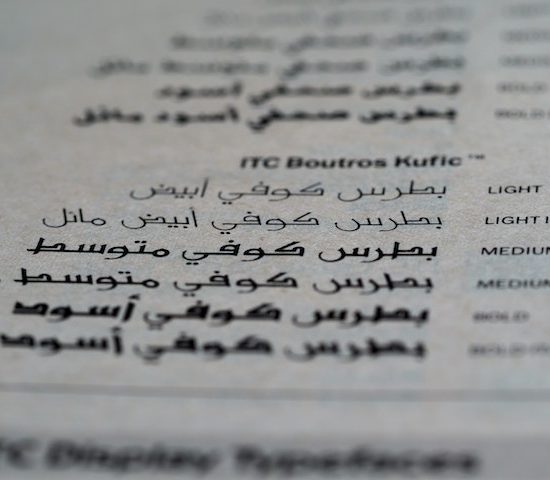 بطرس صحفي أسود
بطرس صحفي أسود مائل
ITC Boutros Kufic™
بطرس كوفي أبيض LIGHT
بطرس كوفي أبيض مائل LIGHT I
بطرس كوفي متوسط MEDIUM
بطرس كوفي متوسط MEDIUM
بطرس كوفي أسود BOLD
بطرس كوفي أسود BOLD
TC Display Typefaces